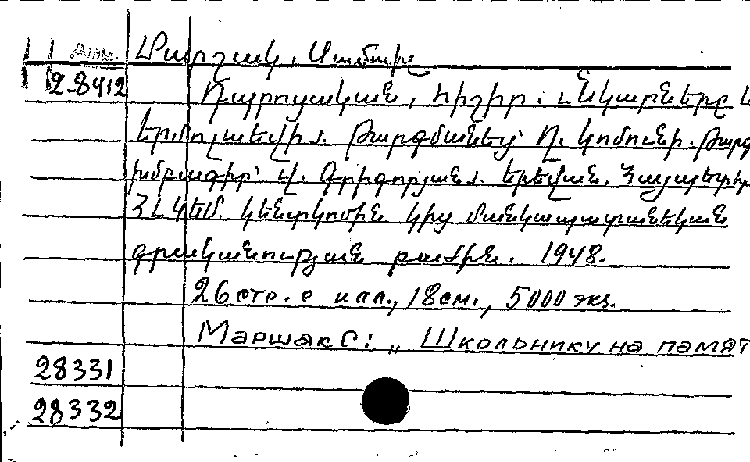 Մարշակ, Սամուիլ
28412 Դպրոցական, հիշիր: Նկարները
Երմոլաևի. Թարգմանեց՝ Դ. Թարգ
խմբագիր՝ Վ. Գրիգորյան. Երևան, Հայպետհր
ՀԼԿԵՄ Կենտկոմին կից մանկապատանեկան
գրականության բաժին. 1948.
26 стр. с илл., 18 см., 5000 экз.
Маршак С: „Школьнику на памят
28331
28332